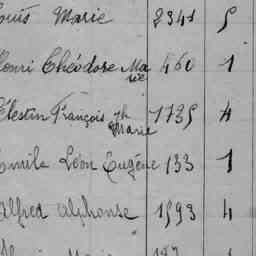 Louis Marie 2341 5
Henri Théodore Marie 460 1
Célestin François Jh Marie 1735 4
Emile Léon Eugène 133 1
Alfred Alphonse 1593 4